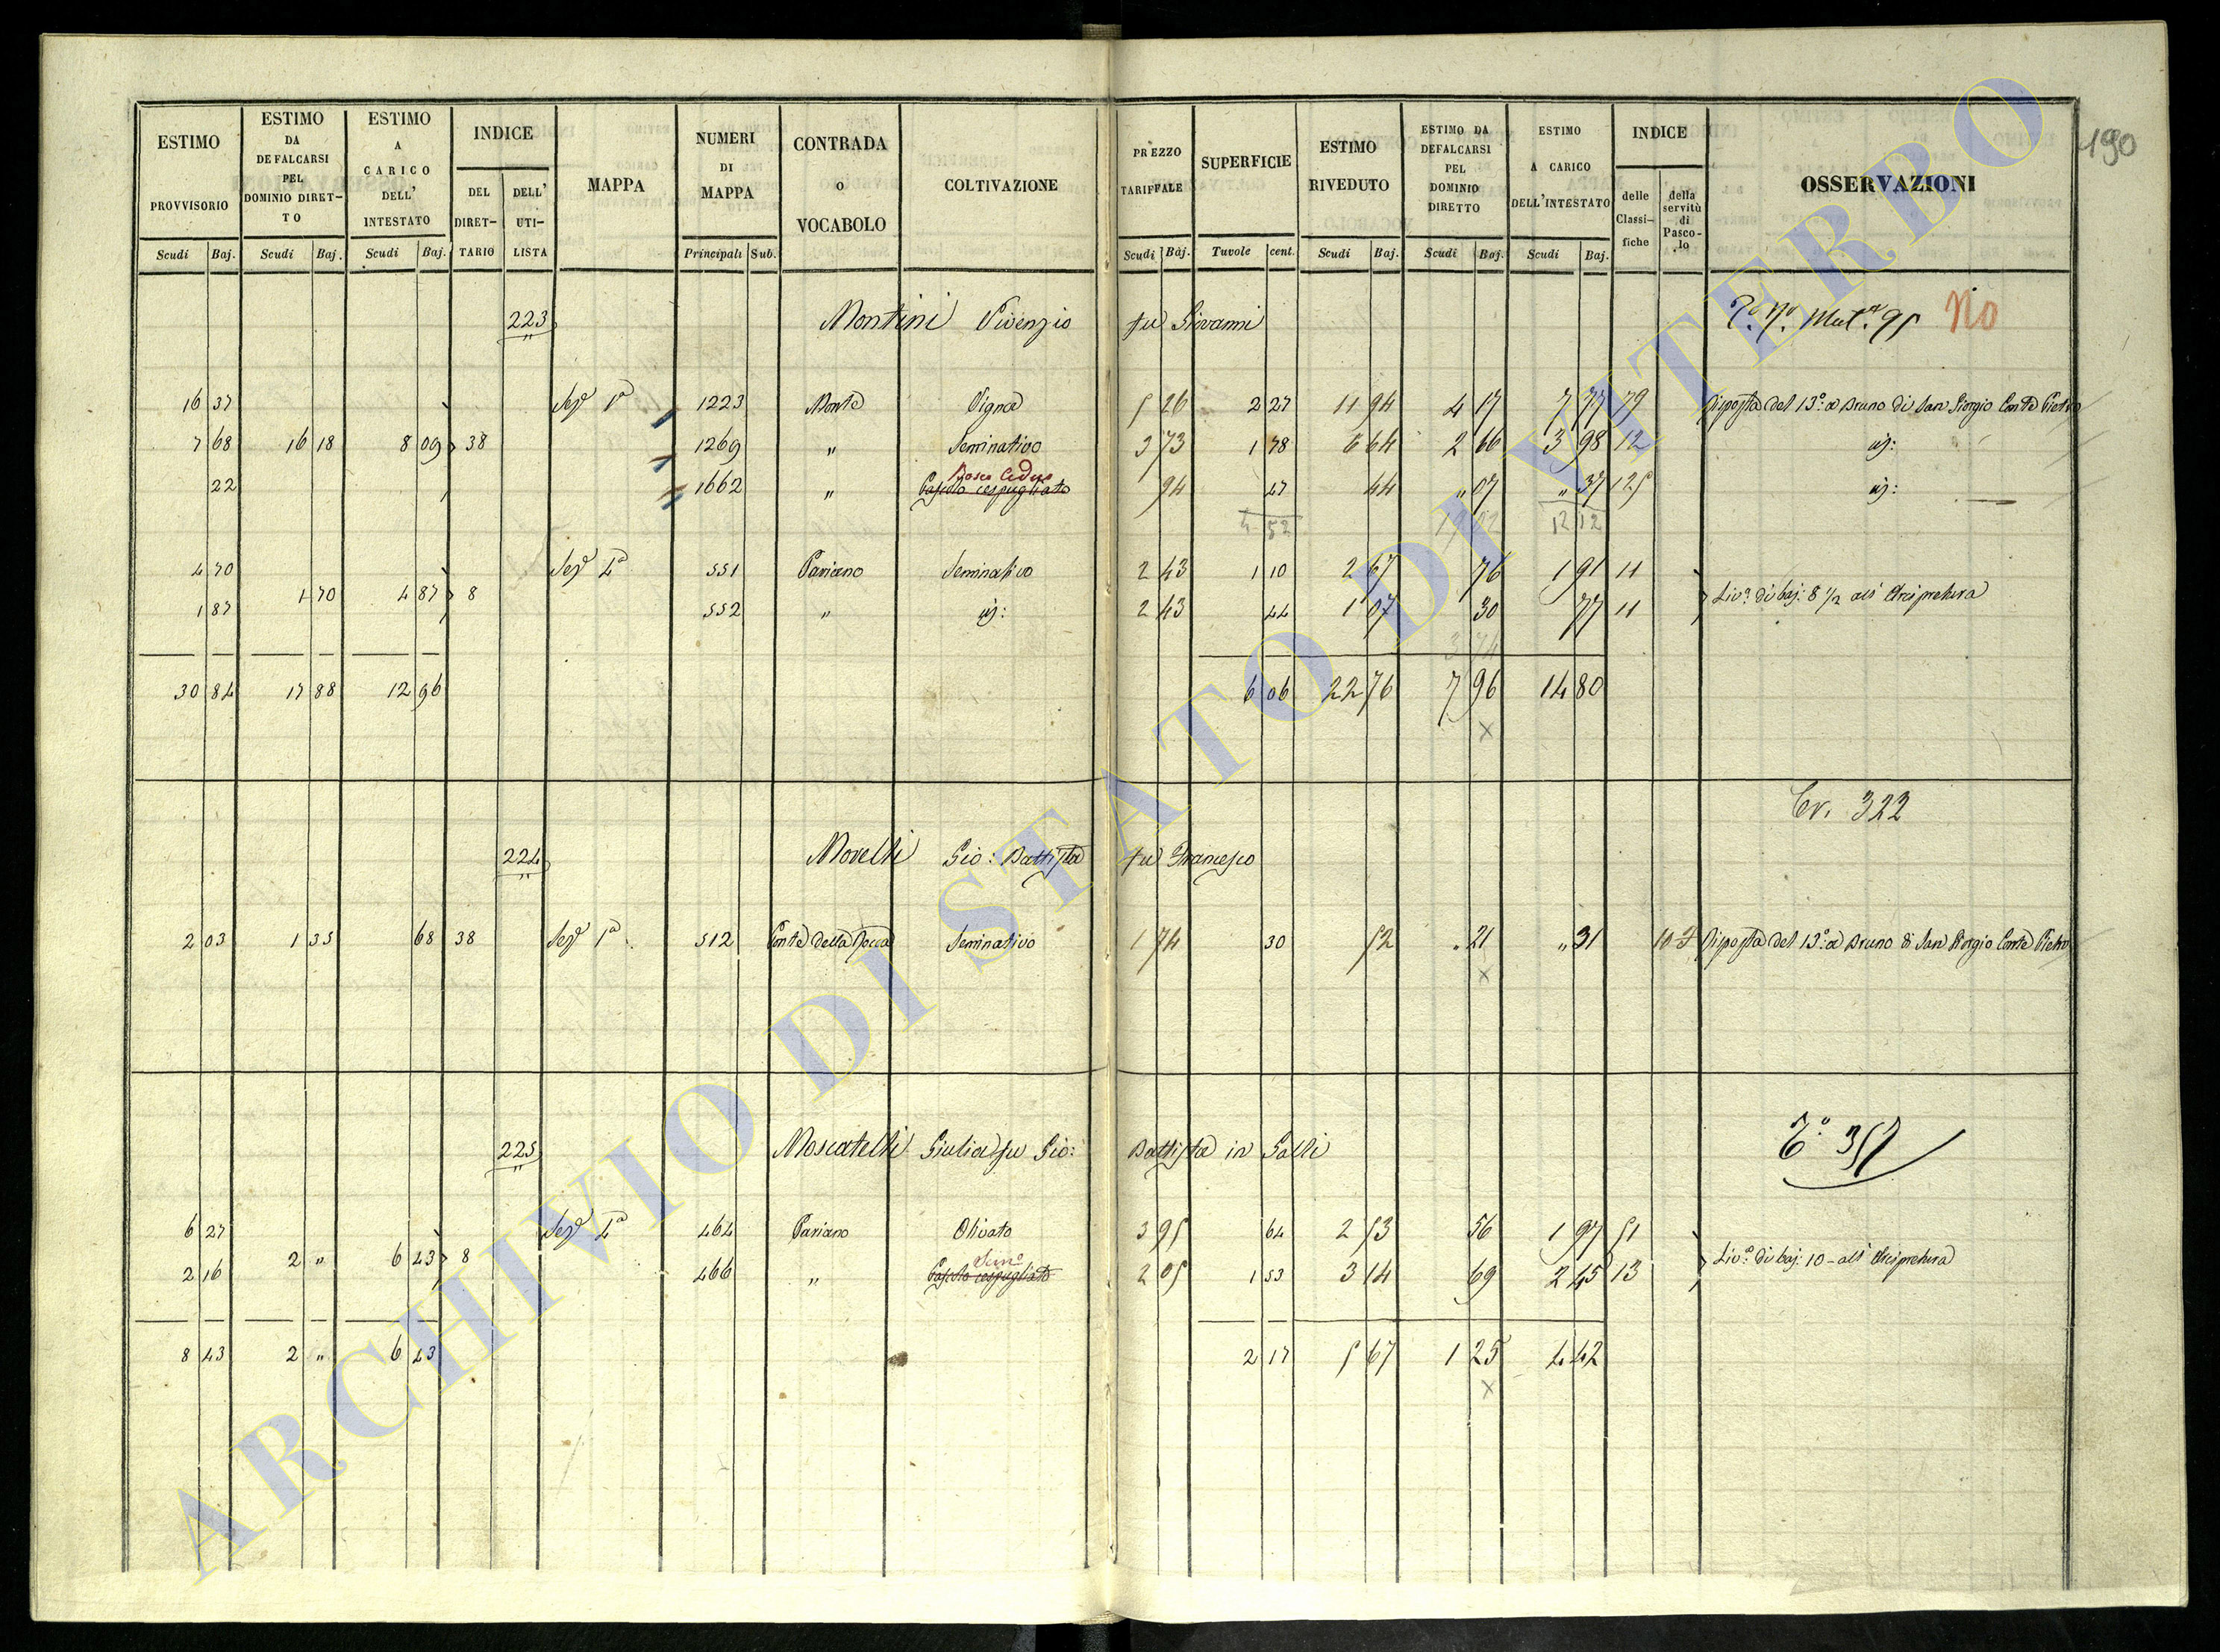 190
ESTIMO PROVVISORIO Scudi Baj.
ESTIMO DA DEFALCARSI PEL DOMINIO DIRET-TO Scudi Baj.
ESTIMO A CARICO DELL' INTESTATO Scudi Baj.
INDICE DEL DIRET-TARIO DELL' UTI-LISTA
MAPPA
NUMERI DI MAPPA Principali Sub.
CONTRADA o VOCABOLO
COLTIVAZIONE
PREZZO TARIFFALE Scudi Baj.
SUPERFICIE Tavole cent.
ESTIMO RIVEDUTO Scudi Baj.
ESTIMO DA DEFALCARSI PEL DOMINIO DIRETTO Scudi Baj.
ESTIMO A CARICO DELL'INTESTATO Scudi Baj.
INDICE delle Classi-fiche della servitù di Pasco-lo
OSSERVAZIONI
223 Montini Vivenzio fu Giovanni Mut.a 95 No
16 37 Sez.e 1a 1223 Monte Vigna 5 26 2 27 11 94 4 17 7 77 79 Risposta del 13° a Bruno di San Giorgio Conte Pietro
7 68 16 18 8 09 38 1269 " Seminativo 3 73 1 78 6 64 2 66 3 98 12 id:
22 1662 " Pascolo cespugliato Bosco Ceduo 94 47 44 " 07 " 37 125 id:
4 52 12 12
4 70 Sez.e 4a 551 Pariano Seminativo 2 43 1 10 2 67 76 1 91 11
1 70 4 87 8 Liv.o di baj: 8 1/2 all' Arcipretura
1 87 552 " id: 2 43 44 1 07 30 77 11
30 84 17 88 12 96 6 06 22 76 7 96 14 80
x
322
224 Morelli Gio: Battista fu Francesco
2 03 1 35 68 38 Sez.e 1a 512 Ponte della Rocca Seminativo 1 74 30 52 " 21 " 31 10 Risposta del 13° a Bruno di San Giorgio Conte Pietro
x
225 Moscatelli Giulia fu Gio: Battista in Galli 357
6 27 Sez.e 4a 464 Pariano Olivato 3 95 64 2 53 56 1 97 51
2 " 6 43 8 Liv.o di baj: 10 - all' Arcipretura
2 16 466 " Pascolo cespugliato Sem.o 2 05 1 53 3 14 69 2 45 13
8 43 2 " 6 43 2 17 5 67 1 25 4 42
x
ARCHIVIO DI STATO DI VITERBO